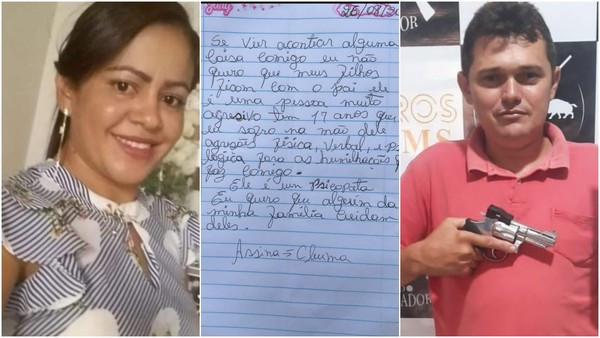 26/08/20
Se vier acontrar alguma
Coisa comigo eu não
quero que meus filhos
ficam com o pai ele
e uma pessoa muito
agresivo tem 17 anos que
eu sofro na mão dele
agração física, verbal, e Psi
lógica fora as humilhação q
faz comigo.
Ele é um Psicopata
Eu quero que alguem da
minha família Cuidam
deles.
Assina →
ROS
MS
ADOR